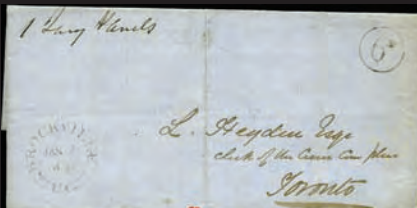 6
BROCKVILLE
JAN
U.C.
L. Heyden Esqr
clerk of the Crown Com pleas
Toronto